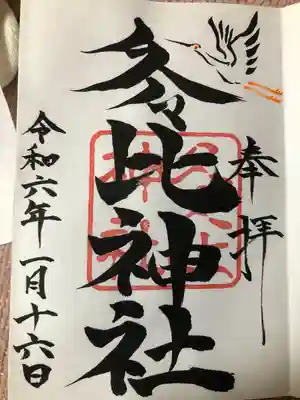 奉拝
久々比神社
令和六年一月十六日